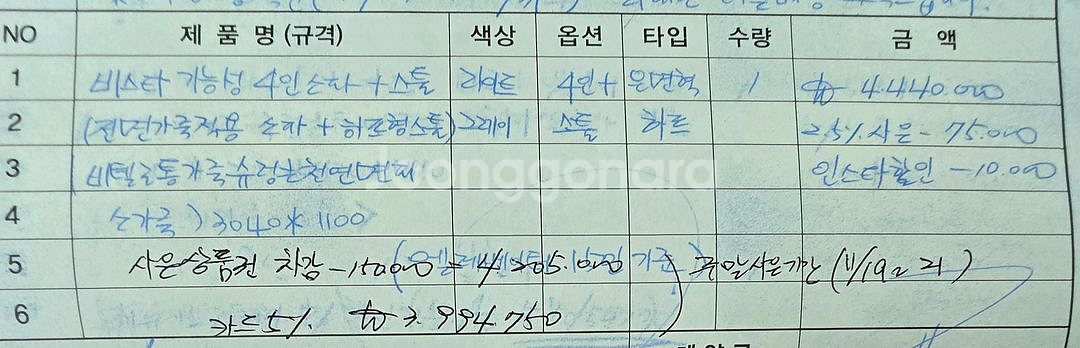 NO 제 품 명 (규격) 색상 옵션 타입 수량 금 액
1 비스타 기능성 4인 소파 + 스툴 라이트 4인+ 온면혁 1 ₩ 4.440.000
2 (전면가죽적용 소파 + 하프형스툴) 그레이 스툴 하프 2.5% 사은 - 75.000
3 비텔로통가죽슈렁큰천연면피 인스타할인 -10.000
4 소가죽) 3040 * 1100
5 사은상품권 차감 -150.000 = 4.205.000 기준 주말사은기간 (1/19 2 외)
6 카드5% ₩ 3.994.750
honggonara